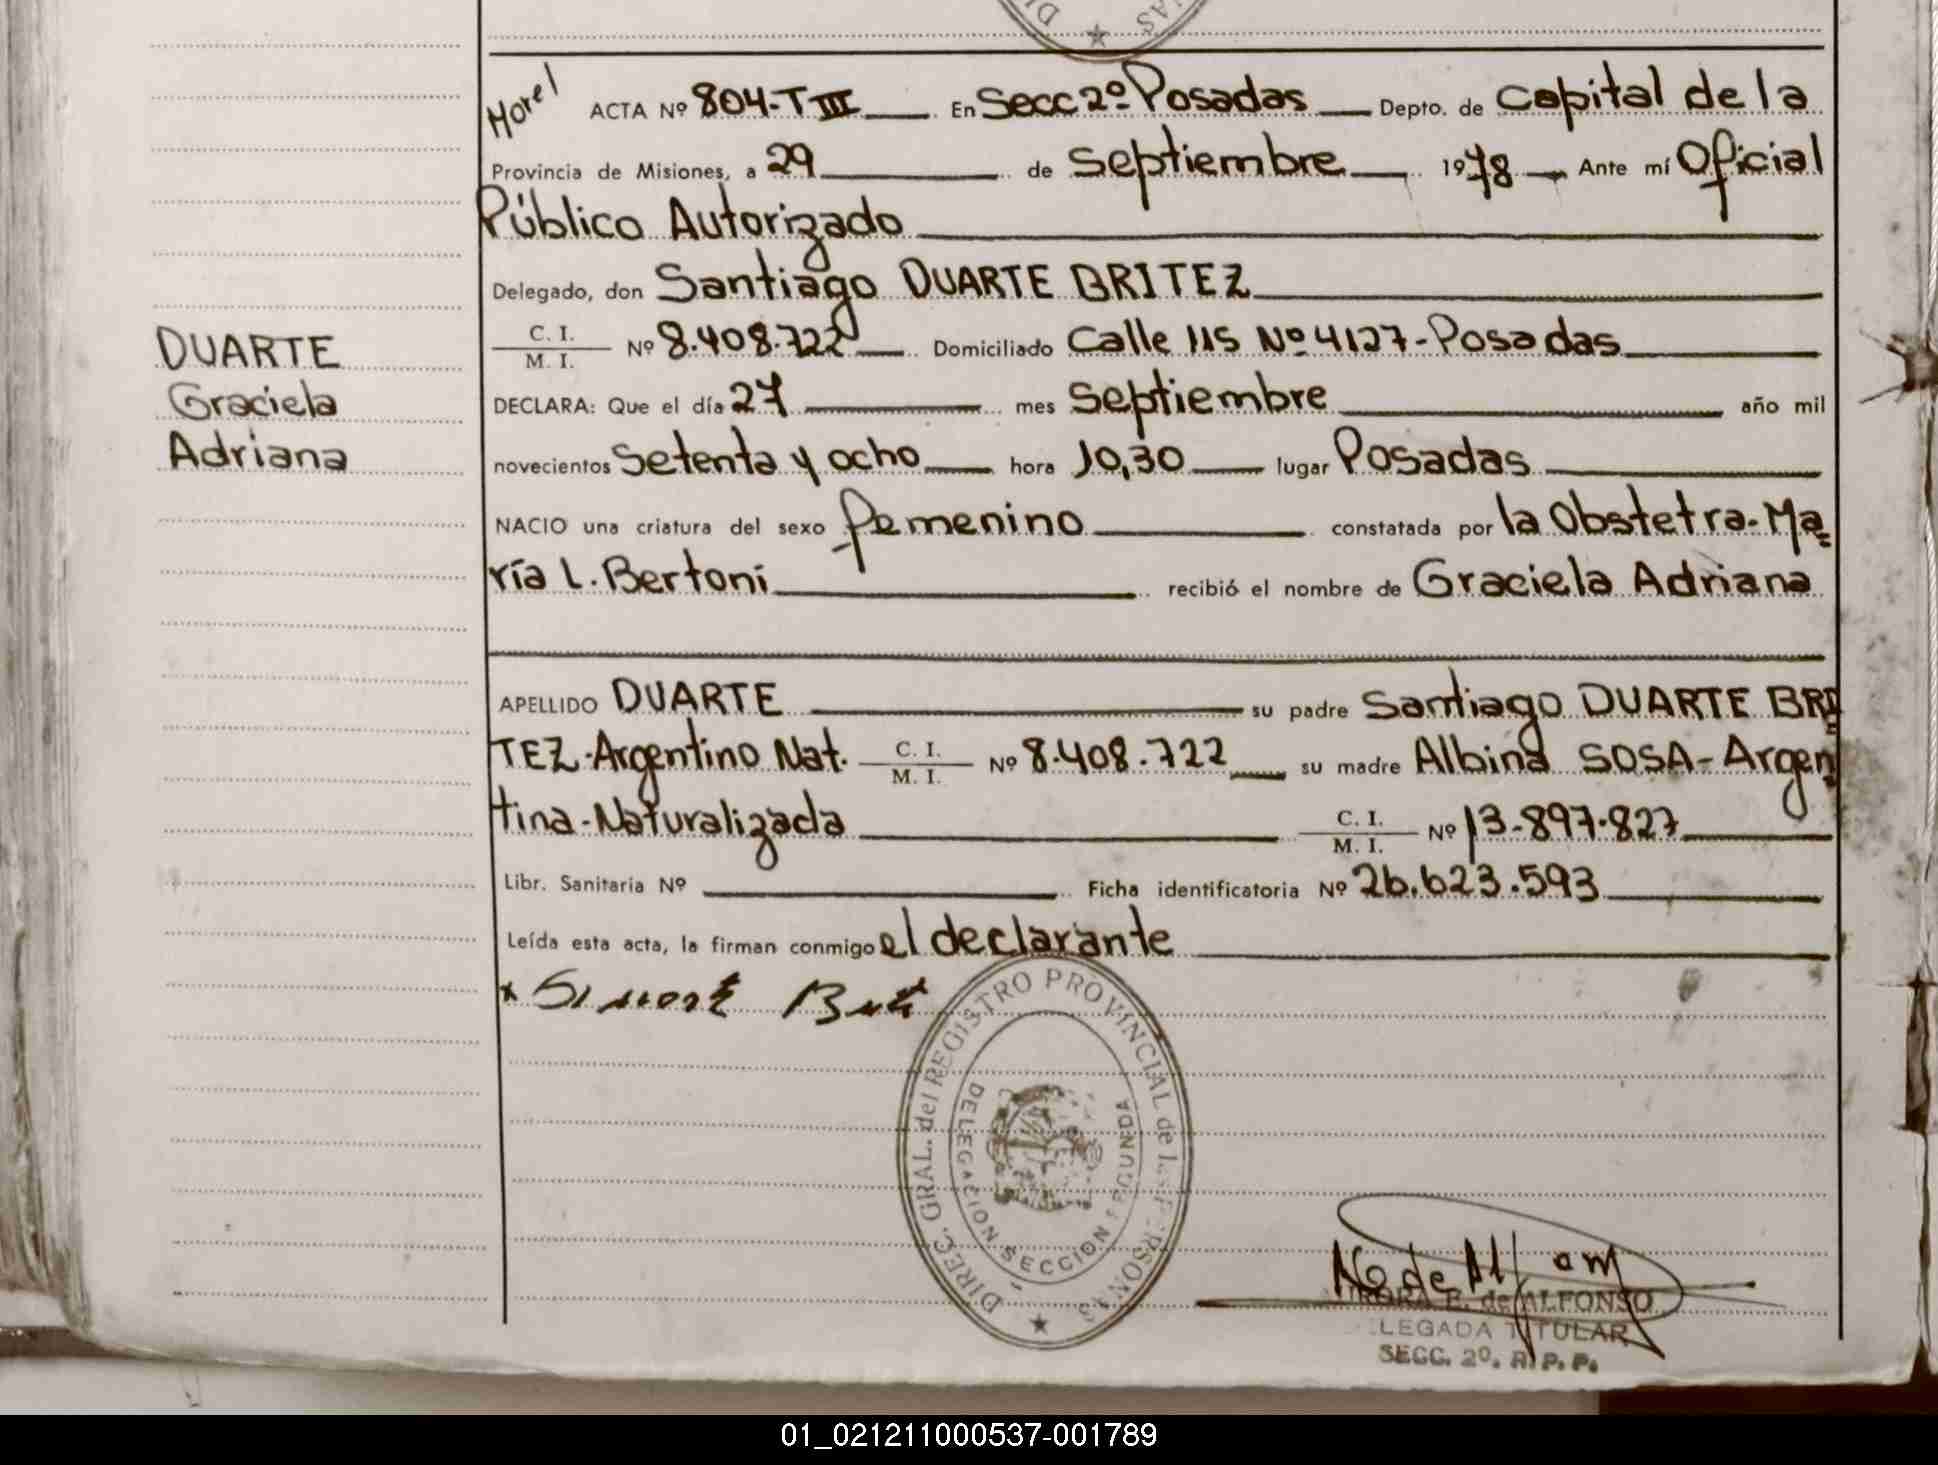 DI AS
Horel ACTA Nº 804-T III En Secc 2º Posadas Depto. de Capital de la
Provincia de Misiones, a 29 de Septiembre 1978 Ante mí Oficial
Público Autorizado
Delegado, don Santiago DUARTE BRITEZ
C. I. M. I. Nº 8.408.722 Domiciliado Calle 115 Nº 4127-Posadas
DUARTE
Graciela
Adriana
DECLARA: Que el día 27 mes Septiembre año mil
novecientos Setenta y ocho hora 10,30 lugar Posadas
NACIO una criatura del sexo femenino constatada por la Obstetra-Ma=
ría L. Bertoni recibió el nombre de Graciela Adriana
APELLIDO DUARTE su padre Santiago DUARTE BRI=
TEZ-Argentino Nat. C. I. M. I. Nº 8.408.722 su madre Albina SOSA-Argen=
tina-Naturalizada C. I. M. I. Nº 13-897.827
Libr. Sanitaria Nº Ficha identificatoria Nº 26.623.593
Leída esta acta, la firman conmigo el declarante
DIREC. GRAL. del REGISTRO PROVINCIAL de las PERSONAS
DELEGACION SECCION SEGUNDA
E. de ALFONSO
LEGADA TITULAR
SECC. 2º. R. P. P.
01_021211000537-001789